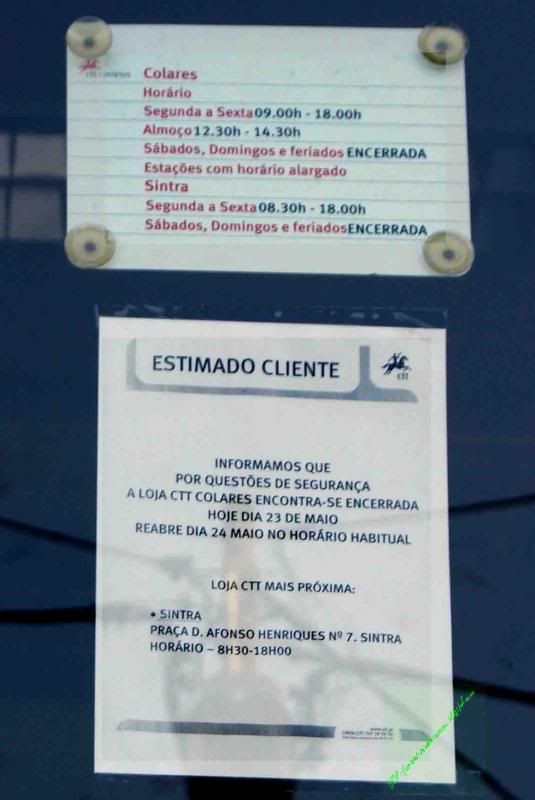 ctt correios
Colares
Horário
Segunda a Sexta 09.00h - 18.00h
Almoço 12.30h - 14.30h
Sábados, Domingos e feriados ENCERRADA
Estações com horário alargado
Sintra
Segunda a Sexta 08.30h - 18.00h
Sábados, Domingos e feriados ENCERRADA
ESTIMADO CLIENTE
ctt
INFORMAMOS QUE
POR QUESTÕES DE SEGURANÇA
A LOJA CTT COLARES ENCONTRA-SE ENCERRADA
HOJE DIA 23 DE MAIO
REABRE DIA 24 MAIO NO HORÁRIO HABITUAL
LOJA CTT MAIS PRÓXIMA:
• SINTRA
PRAÇA D. AFONSO HENRIQUES Nº 7. SINTRA
HORÁRIO – 8H30-18H00
www.ctt.pt